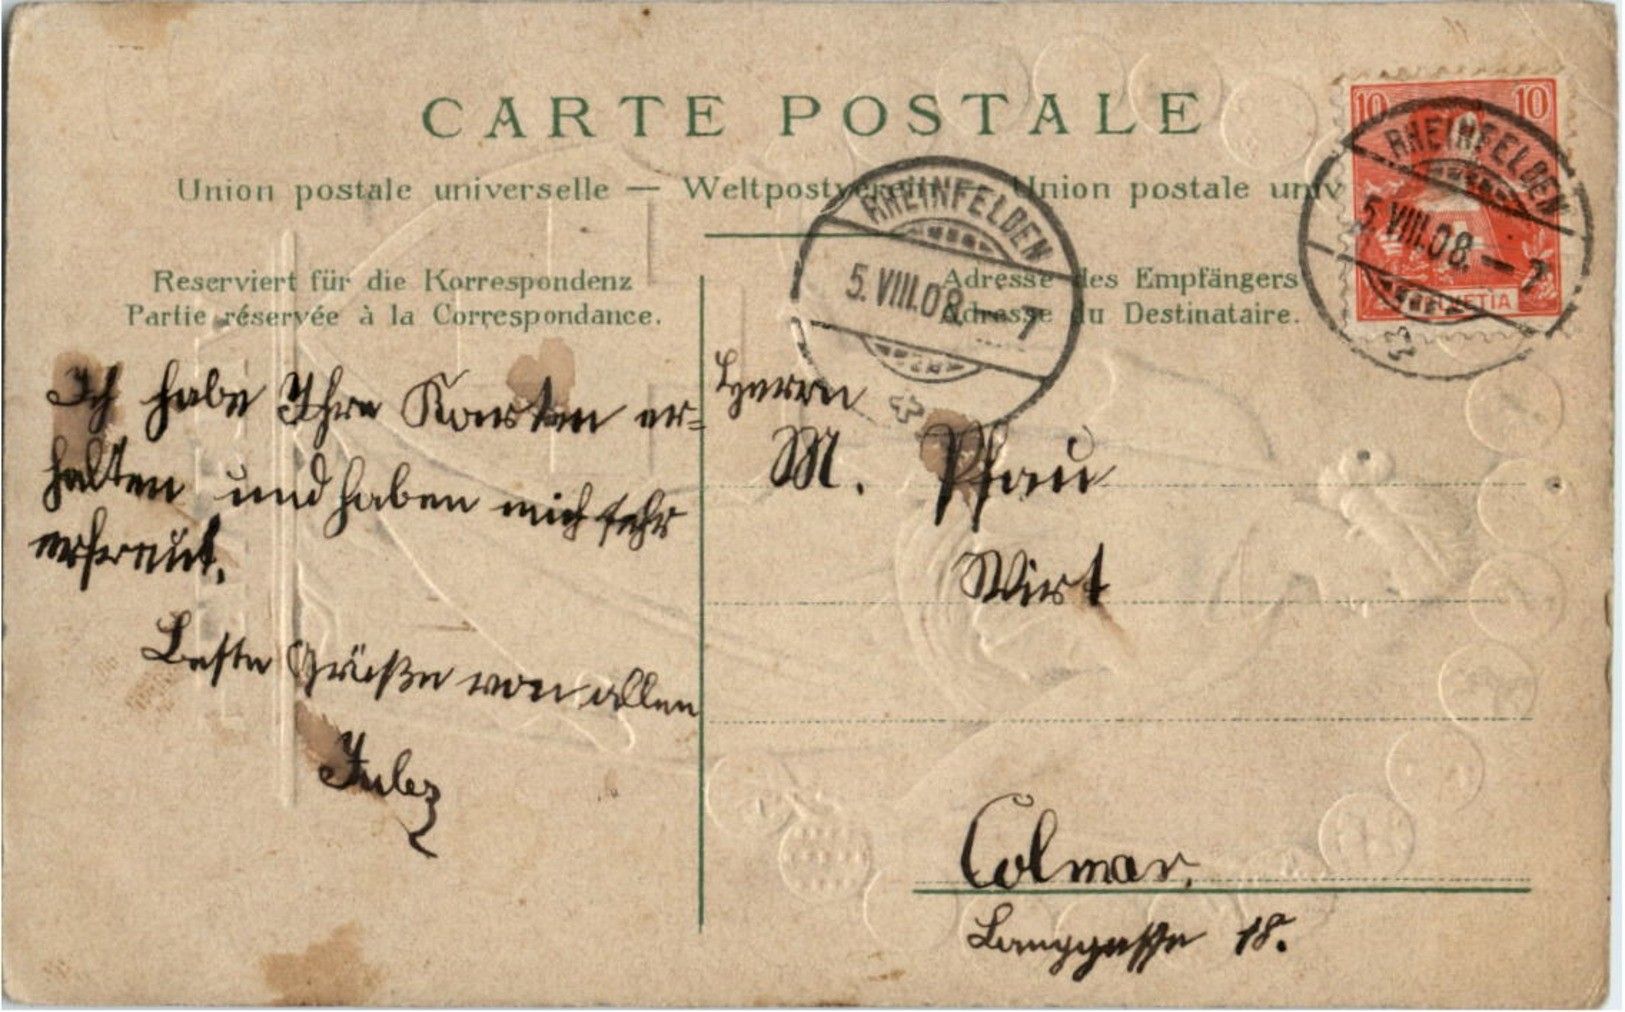 CARTE POSTALE
Union postale universelle — Weltpostverein — Union postale univ
Reserviert für die Korrespondenz
Partie réservée à la Correspondance.
Adresse des Empfängers
Adresse du Destinataire.
RHEINFELDEN
5. VIII. 08. 7
10 10
RHEINFELDEN
5. VIII. 08. — 7
HELVETIA
Ich habe Ihre Karten er=
halten und haben mich sehr
erfreut.
Beste Grüße von allen
Herrn
M. Pfau
Wirt
Colmar.
Langgasse 18.